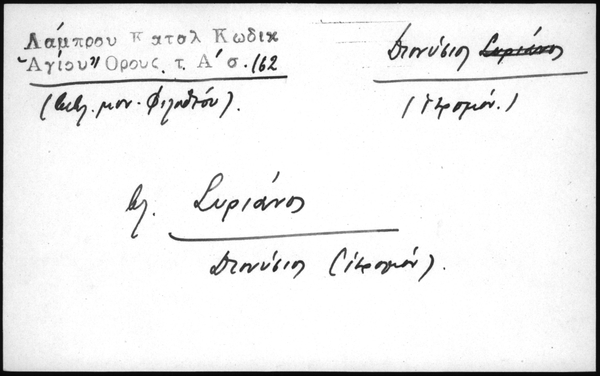 Λάμπρου Καταλ Κωδικ
"Αγίου" Όρους. τ. Α' σ. 162
(Βιβλ. μον. Φιλοθέου).
Διονύσιος Συριάνος
(Ιερομόν.)
βλ. Συριάνος
Διονύσιος (ιερομόν).